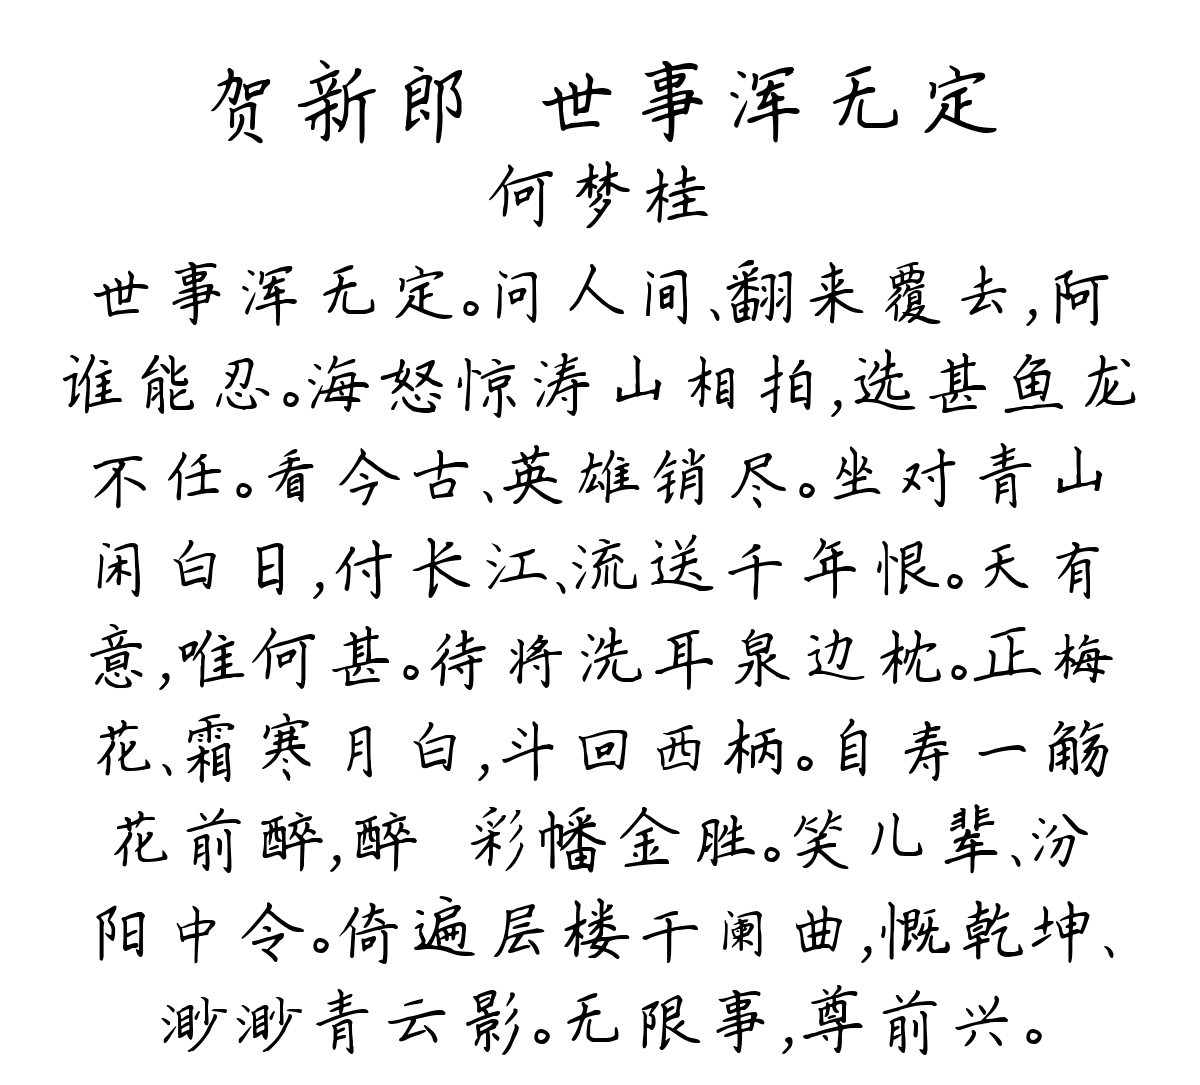 贺新郎 世事浑无定
何梦桂
世事浑无定。问人间、翻来覆去，阿
谁能忍。海怒惊涛山相拍，选甚鱼龙
不任。看今古、英雄销尽。坐对青山
闲白日，付长江、流送千年恨。天有
意，唯何甚。待将洗耳泉边枕。正梅
花、霜寒月白，斗回西柄。自寿一觞
花前醉，醉 彩幡金胜。笑儿辈、汾
阳中令。倚遍层楼干阑曲，慨乾坤、
渺渺青云影。无限事，尊前兴。